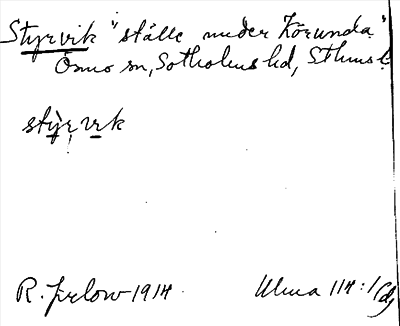 Styrvik "ställe under Körunda"
Ösmo sn, Sotholms hd, Sthms l.
stỳrvik
R. Jirlow 1914.
Ulma 114:1